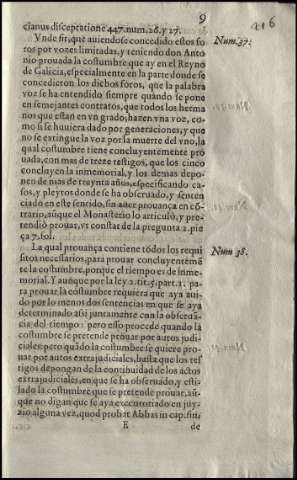 9
216
cianus disceptatione 447. num. 26. y 27.
Vnde sit, que auiendose concedido estos fo
ros por vozes limitadas, y teniendo don Anto
nio prouada la costumbre que ay en el Reyno
de Galicia, especialmente en la parte donde se
concedieron los dichos foros, que la palabra
voz se ha entendido siempre quando se pone
en semejantes contratos, que todos los herma
nos que estan en vn grado, hazen vna voz, co-
mo si se huuiera dado por generaciones, y que
no se extingue la voz por la muerte del vno, la
qual costumbre tiene concluyentemente pro
uada, con mas de treze testigos, que los cinco
concluyen la inmemorial, y los demas depo-
nen de mas de treynta años, especificando ca-
sos, y pleytos donde se ha obseruado, y senten
ciado en este sentido, sin auer prouança en cõ-
trario, aũque el Monasterio lo articulò, y pre-
tendiò prouar, vt constat de la pregunta 2. pie
ça 7. fol.
La qual prouança contiene todos los requi
sitos necessarios, para prouar concluyentemẽ
te la costumbre, porque el tiempo es de inme-
morial. Y aunque por la ley 2. tit. 5. part. 1. pa-
ra prouar la costumbre requiera que aya aui-
do por lo menos dos sentencias en que se aya
determinado assi juntamente con la obserua-
cia del tiempo: pero esso procede quando la
costumbre se pretende prouar por autos judi-
ciales: pero quãdo la costumbre se quiere pro-
uar por autos extrajudiciales, basta que los tes
tigos depongan de la continuidad de los actos
extrajudiciales, en que se ha obseruado, y esti-
lado la costumbre que se pretende prouar, aũ-
que no digan que se aya executoriado en juy-
zio alguna vez, quod probat Abbas in cap. fin,
E
de
Num. 37.
Num 38.